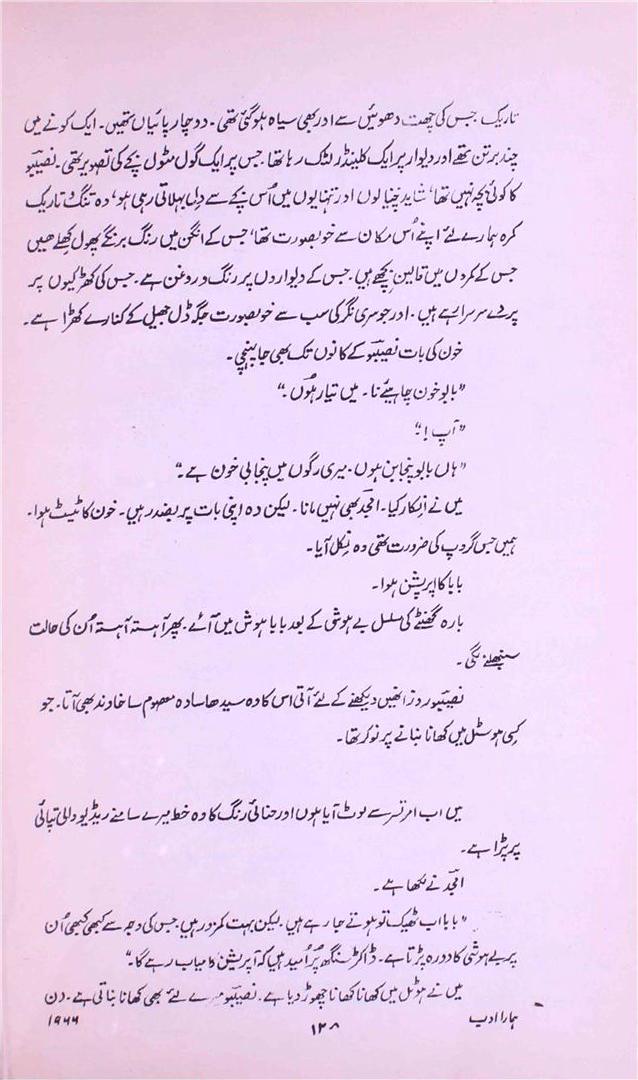 تاریک جس کی چھت دھوئیں سے اور بھی سیاہ ہو گئی تھی۔ دو چارپائیاں تھیں۔ ایک کونے میں
چند برتن تھے اور دیوار پر ایک کلینڈر لٹک رہا تھا۔ جس پر ایک گول مٹول بچے کی تصویر تھی۔ نصیبو
کا کوئی بچہ نہیں تھا، شاید چنچالوں اور تنہائیوں میں اُس بچے سے دل بہلاتی رہی ہو، وہ تنگ و تاریک
کمرہ ہمارے لئے اپنے اُس مکان سے خوبصورت تھا، جس کے انگن میں رنگ برنگے پھول کھلے ھیں
جس کے کمروں میں قالین بچھے ہیں۔ جس کے دیواروں پر رنگ و روغن ہے۔ جس کی کھڑکیوں پر
پردے سرسرا رہے ہیں۔ اور جو سری نگر کی سب سے خوبصورت جگہ ڈل جھیل کے کنارے کھڑا ہے۔
خون کی بات نصیبو کے کانوں تک بھی جا پہنچی۔
"بابو خون چاہیئے نا۔ میں تیار ہُوں۔"
"آپ!۔"
"ہاں بابو پنجابن ہوں۔ میری رگوں میں پنجابی خون ہے۔"
میں نے اِنکار کیا۔ امجد بھی نہیں مانا۔ لیکن وہ اپنی بات پر بضد رہیں۔ خون کا ٹیسٹ ہوا۔
ہمیں جس گروپ کی ضرورت تھی وہ نِکل آیا۔
بابا کا اپریشن ہوا۔
بارہ گھنٹے کی مسلسل بے ہوشی کے بعد بابا ہوش میں آئے۔ پھر آہستہ آہستہ اُن کی حالت
سنبھلنے لگی۔
نصیبو روز انھیں دیکھنے کے لئے آتی اس کا وہ سیدھا سادہ معصوم سا خاوند بھی آتا۔ جو
کِسی ہوسٹل میں کھانا بنانے پر نوکر تھا۔
میں اب امرتسر سے لوٹ آیا ہوں اور حنائی رنگ کا وہ خط میرے سامنے ریڈیو والی تپائی
پر پڑا ہے۔
امجد نے لکھا ہے۔
"بابا اب ٹھیک تو ہوتے جا رہے ہیں۔ لیکن بہت کمزور ہیں۔ جس کی وجہ سے کبھی کبھی اُن
پر بے ہوشی کا دورہ پڑتا ہے۔ ڈاکٹر سنگھ پُر اُمید ہیں کہ آپریشن کامیاب رہے گا۔"
میں نے ہوٹل میں کھانا کھانا چھوڑ دیا ہے۔ نصیبو میرے لئے بھی کھانا بناتی ہے۔ دن
ہمارا ادب
۱۲۸
۱۹۶۶